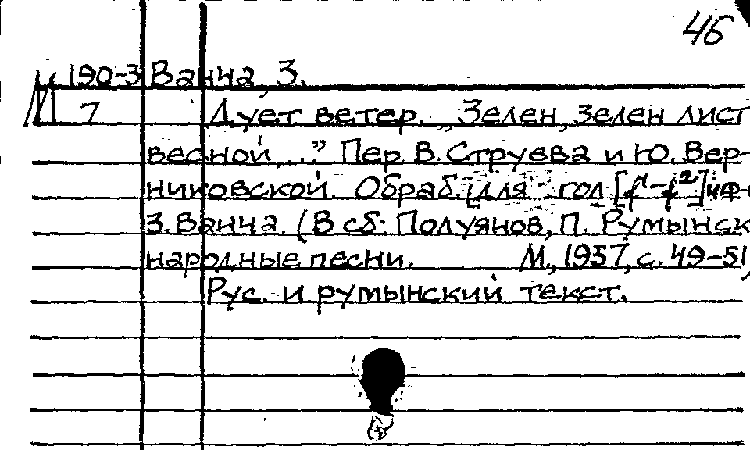 46
М 190-3 Ванча, З.
7 Дует ветер. „Зелен, зелен лист
весной...” Пер. В. Струева и Ю. Вер-
никовской. Обраб. [для гол [f¹-f²]
З. Ванча. (В сб: Полуянов, П. Румынск
народные песни. М, 1957, с. 49-51,
Рус. и румынский текст.